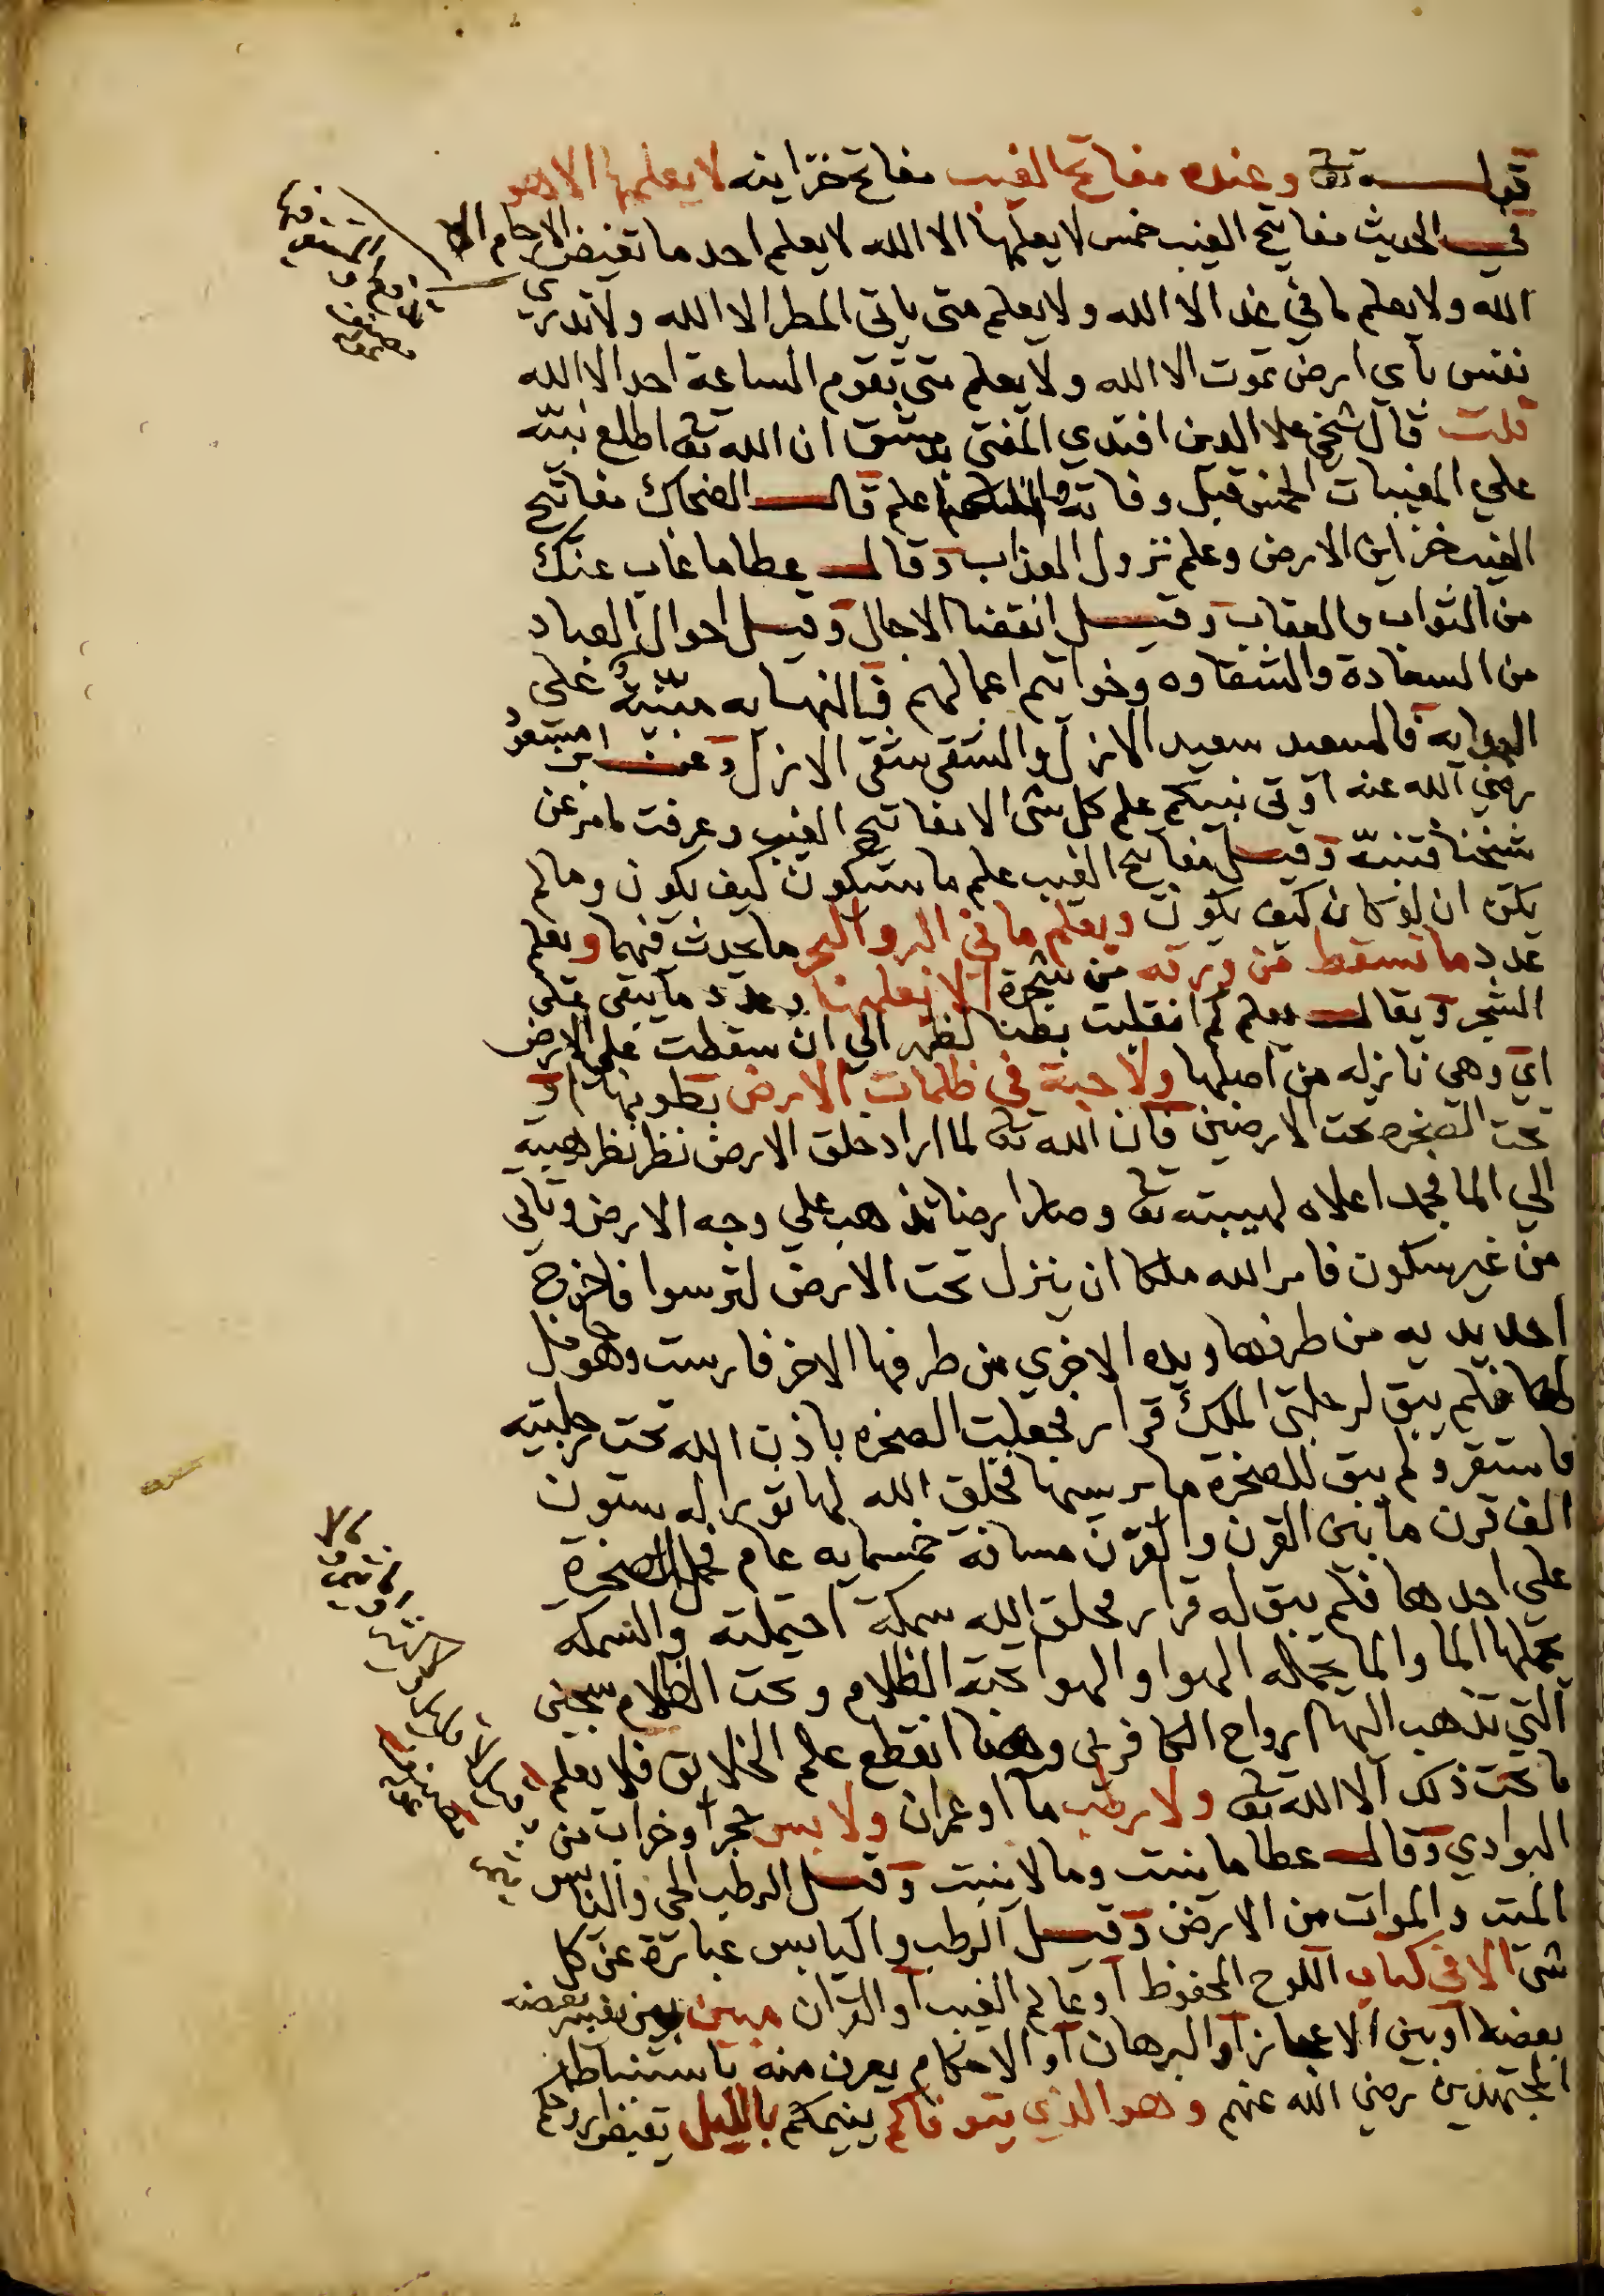 قوله تعالى وعنده مفاتح الغيب مفاتح خزاينه لا يعلمها الا هو
في الحديث مفاتيح الغيب خمس لا يعلمها الا الله لا يعلم احد ما تغيض الارحام الا
الله ولا يعلم ما في غد الا الله ولا يعلم متى ياتي المطر الا الله ولا تدري
نفس باي ارض تموت الا الله ولا يعلم متى تقوم الساعة احد الا الله
قلت قال شيخي علا الدين افندي المفتي بدمشق ان الله تعالى اطلع نبيه
علي المغيبات الخمس قبل وفاته والله اعلم قال الضحاك مفاتيح
الغيب خزاين الارض وعلم نزول العذاب وقال عطا ما غاب عنك
من الثواب والعقاب وقيل انقضا الاجال وقيل احوال العباد
من السعادة والشقاوه وخواتم اعمالهم فالنهايه مبنية على
البدايه فالسعيد سعيد الازل والشقي شقي الازل وعن ابن مسعود
رضي الله عنه اوتي نبيكم علم كل شي الا مفاتيح الغيب وعرفت ما مر عن
شيخنا فتنبه وقيل مفاتيح الغيب علم ما سيكون كيف يكون وما لم
يكن ان لو كان كيف يكون ويعلم ما في البر والبحر ما يحدث فيهما ويعلم
عدد ما تسقط من ورقه من شجرة الا يعلمها وعدد ما يبقى على
الشجر ويقال يعلم كم انقلبت بطنا لظهر الي ان سقطت علي الارض
اي وهي نازله من اصلها ولا حبة في ظلمات الارض بطونها او
تحت الصخره تحت الارضين فان الله تعالى لما اراد خلق الارض نظر نظر هيبة
الي الما فجمد اعلاه لهيبته تعالى وصار ارضا تذهب علي وجه الارض وتاتي
من غير سكون فامر الله ملكا ان ينزل تحت الارض لترسوا فاخرج
احد يديه من طرفها ويده الاخري من طرفها الاخر فارست وهو حامل
لها فلم يبق لرجلي الملك قرار فجعلت الصخره باذن الله تحت رجليه
فاستقر ولم يبق للصخرة ما يرسيها فخلق الله لها ثورا له ستون
الف قرن ما بين القرن والقرن مسافة خمسمايه عام فحمل الصخرة
على احدها فلم يبق له قرار فخلق الله سمكة احتملته والسمكه
يحملها الما والما يحمله الهوا والهوا تحته الظلام وتحت الظلام سجين
التي تذهب اليها ارواح الكافرين وهنا انقطع علم الخلايق فلا يعلم
ما تحت ذلك الا الله تعالى ولا رطب ما او عمران ولا يابس حجر او خراب من
البوادي وقال عطا ما ينبت وما لا ينبت وقيل الرطب الحي واليابس
الميت والموات من الارض وقيل الرطب واليابس عبارة عن كل
شي الا في كتاب اللوح المحفوظ او عالم الغيب او القران مبين بين تفسير بعضه
بعضا او بين الاعجاز او البرهان او الاحكام يعرف منه باستنباط
المجتهدين رضي الله عنهم وهو الذي يتوفاكم ينيمكم بالليل يقبض ارواحكم